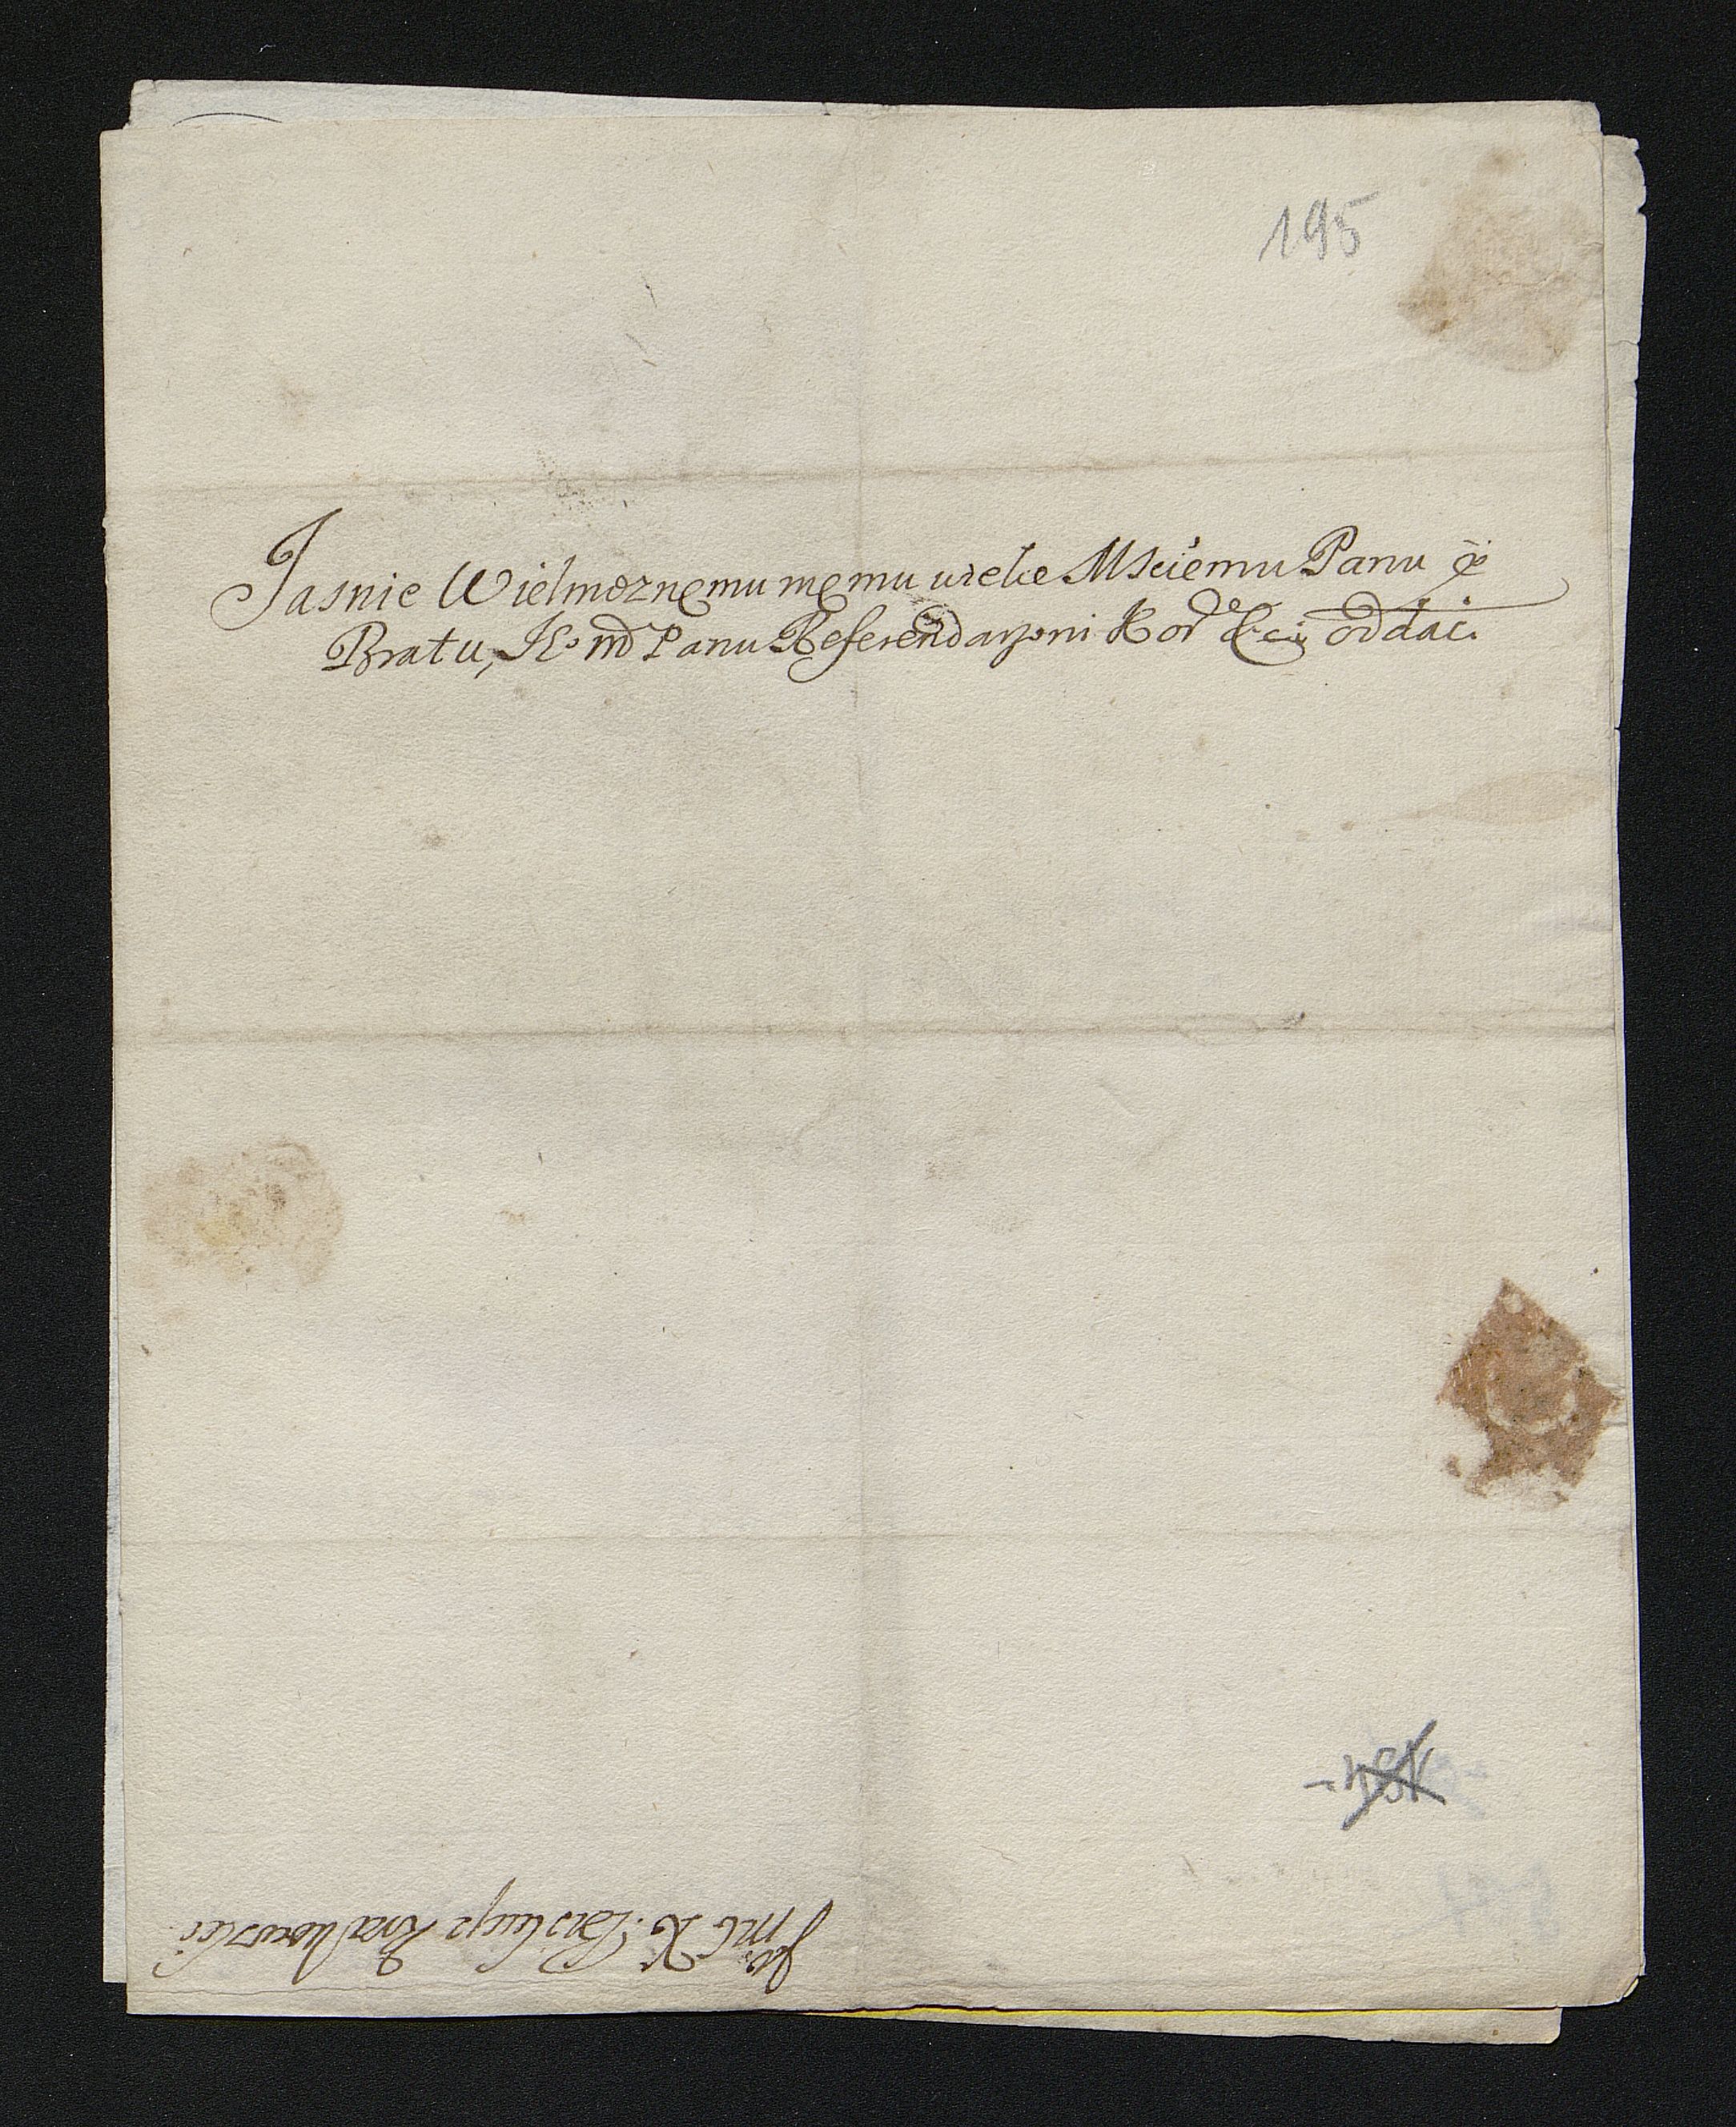 195
Jasnie Wielmoznemu memu wielce Msciemu Panu &
Bratu, Panu Referendarzowi Kor oddac.
JMC X. Biskup Krakowski